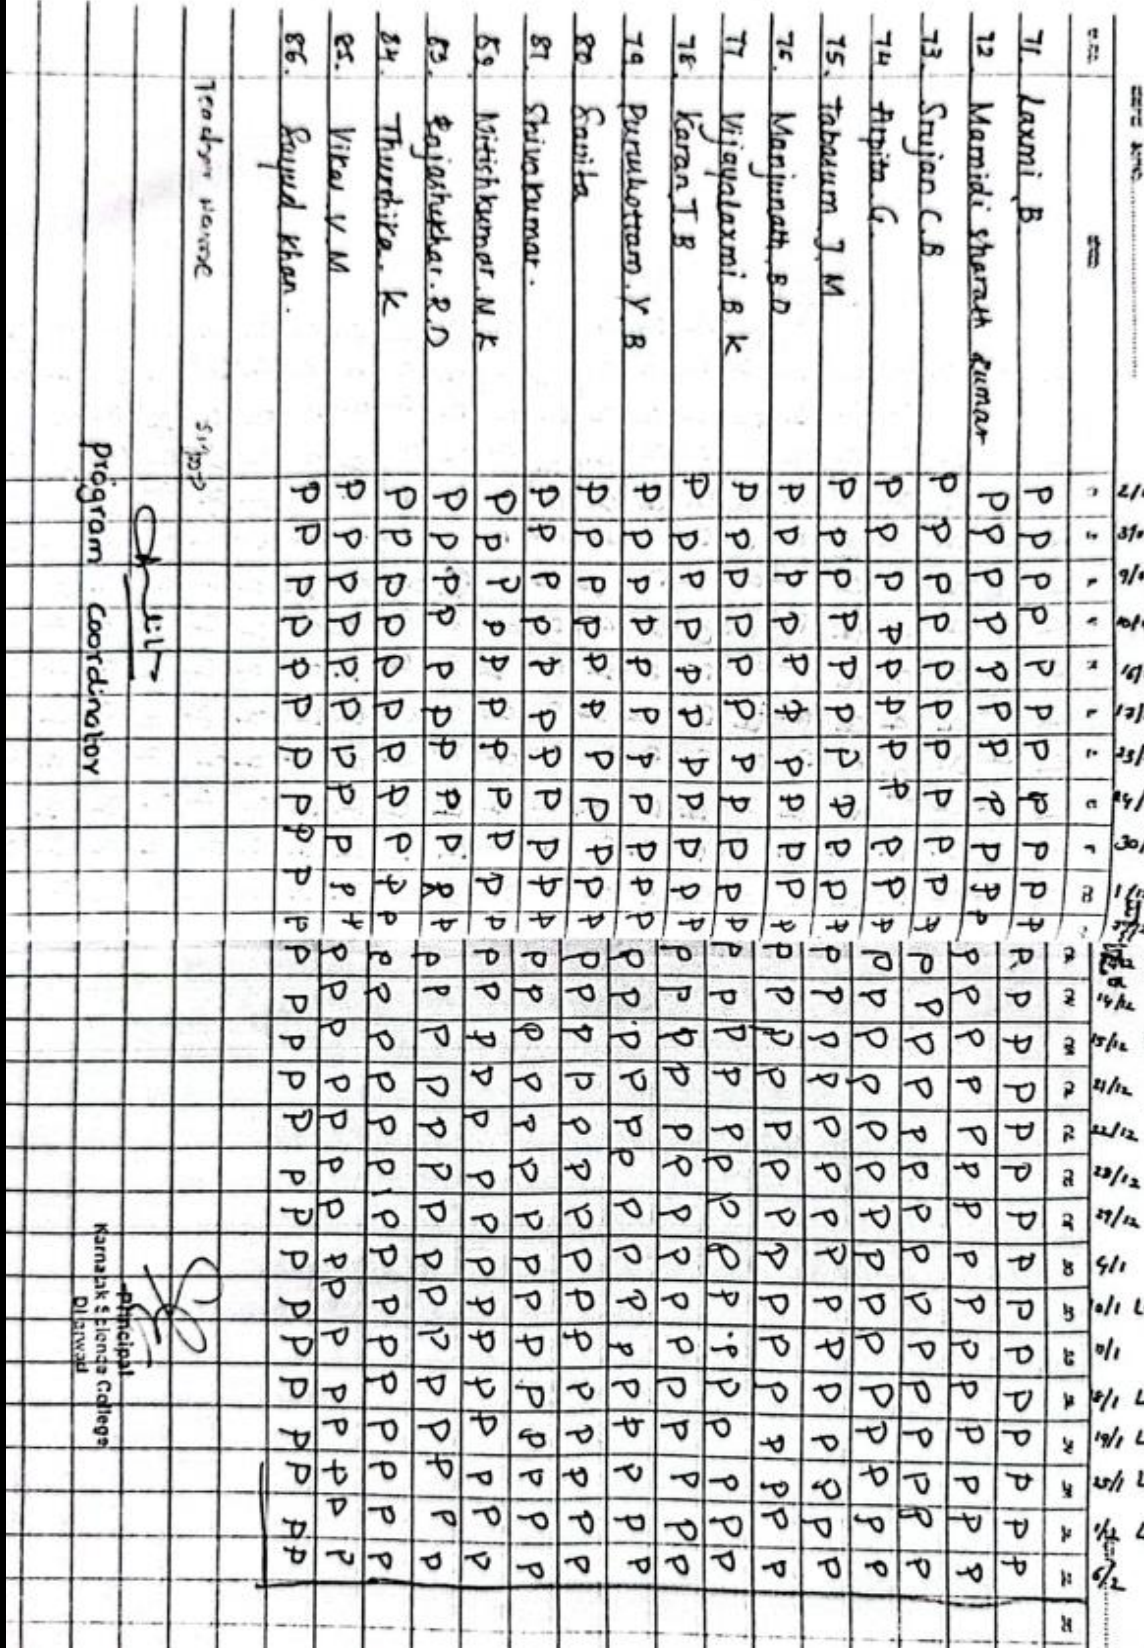 14/12 15/12 21/12 22/12 28/12 29/12 4/1 10/1 L 18/1 L 19/1 L 25/1 L 6/2
71. Laxmi B P P P P P P P P P P P P P P P P P P P P P P P P P P
72 Mamidi sharath kumar P P P P P P P P P P P P P P P P P P P P P P P P P P
73. Srujan C.B P P P P P P P P P P P P P P P P P P P P P P P P P P
74 Arpita G. P P P P P P P P P P P P P P P P P P P P P P P P P P
75. Tabasum J M P P P P P P P P P P P P P P P P P P P P P P P P P P
76. Manjunath. B D P P P P P P P P P P P P P P P P P P P P P P P P P P
77 Vijayalaxmi. B K P P P P P P P P P P P P P P P P P P P P P P P P P P
78 Karan T. B P P P P P P P P P P P P P P P P P P P P P P P P P P
79 Purushottam. Y. B P P P P P P P P P P P P P P P P P P P P P P P P P P
80 Savita P P P P P P P P P P P P P P P P P P P P P P P P P P
81. Shivnkumar. P P P P P P P P P P P P P P P P P P P P P P P P P P
82. Mitishkumar. N. K P P P P P P P P P P P P P P P P P P P P P P P P P P
83. Rajashekhar. R.D P P P P P P P P P P P P P P P P P P P P P P P P P P
84. Thurthika. K P P P P P P P P P P P P P P P P P P P P P P P P P P
85. Vikas V. M P P P P P P P P P P P P P P P P P P P P P P P P P P
86. Khan. P P P P P P P P P P P P P P P P P P P P P P P P P P
Teacher Name
Program Coordinator
Principal
Karnatak Science College
Dharwad